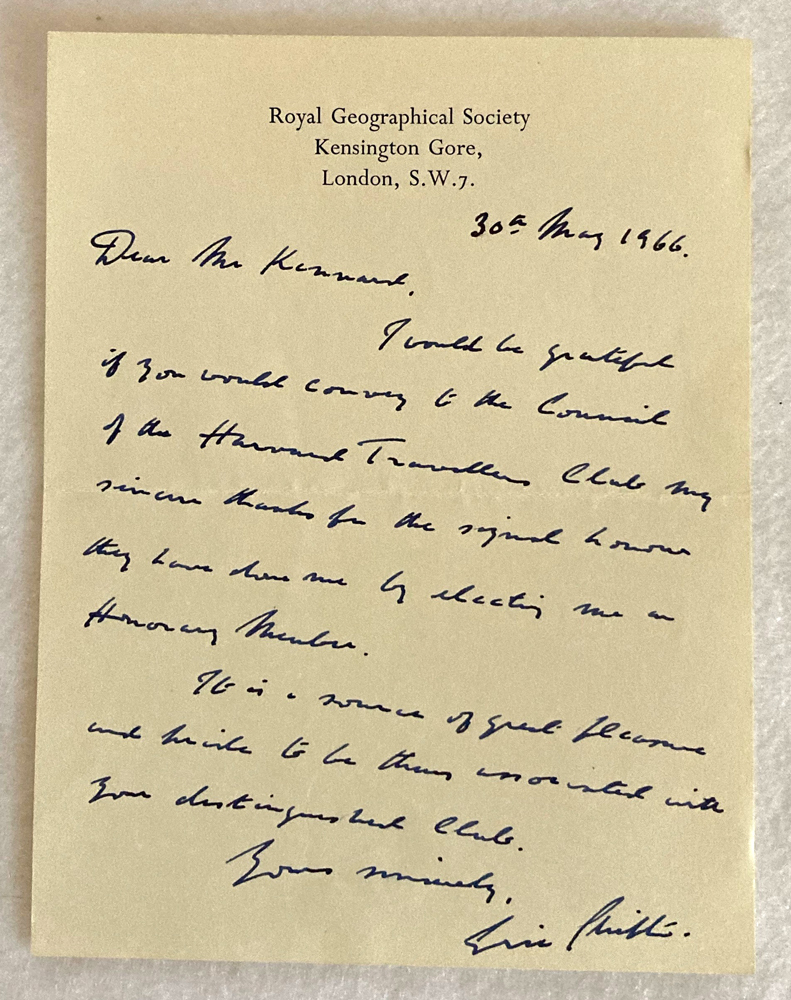 Royal Geographical Society
Kensington Gore,
London, S.W.7.
30th May 1966.
Dear Mr Kennard,
I would be grateful
if you would convey to the Council
of the Harvard Travellers Club my
sincere thanks for the signal honour
they have done me by electing me an
Honorary Member.
It is a source of great pleasure
and pride to be thus associated with
your distinguished Club.
Yours sincerely,
Eric Shipton.